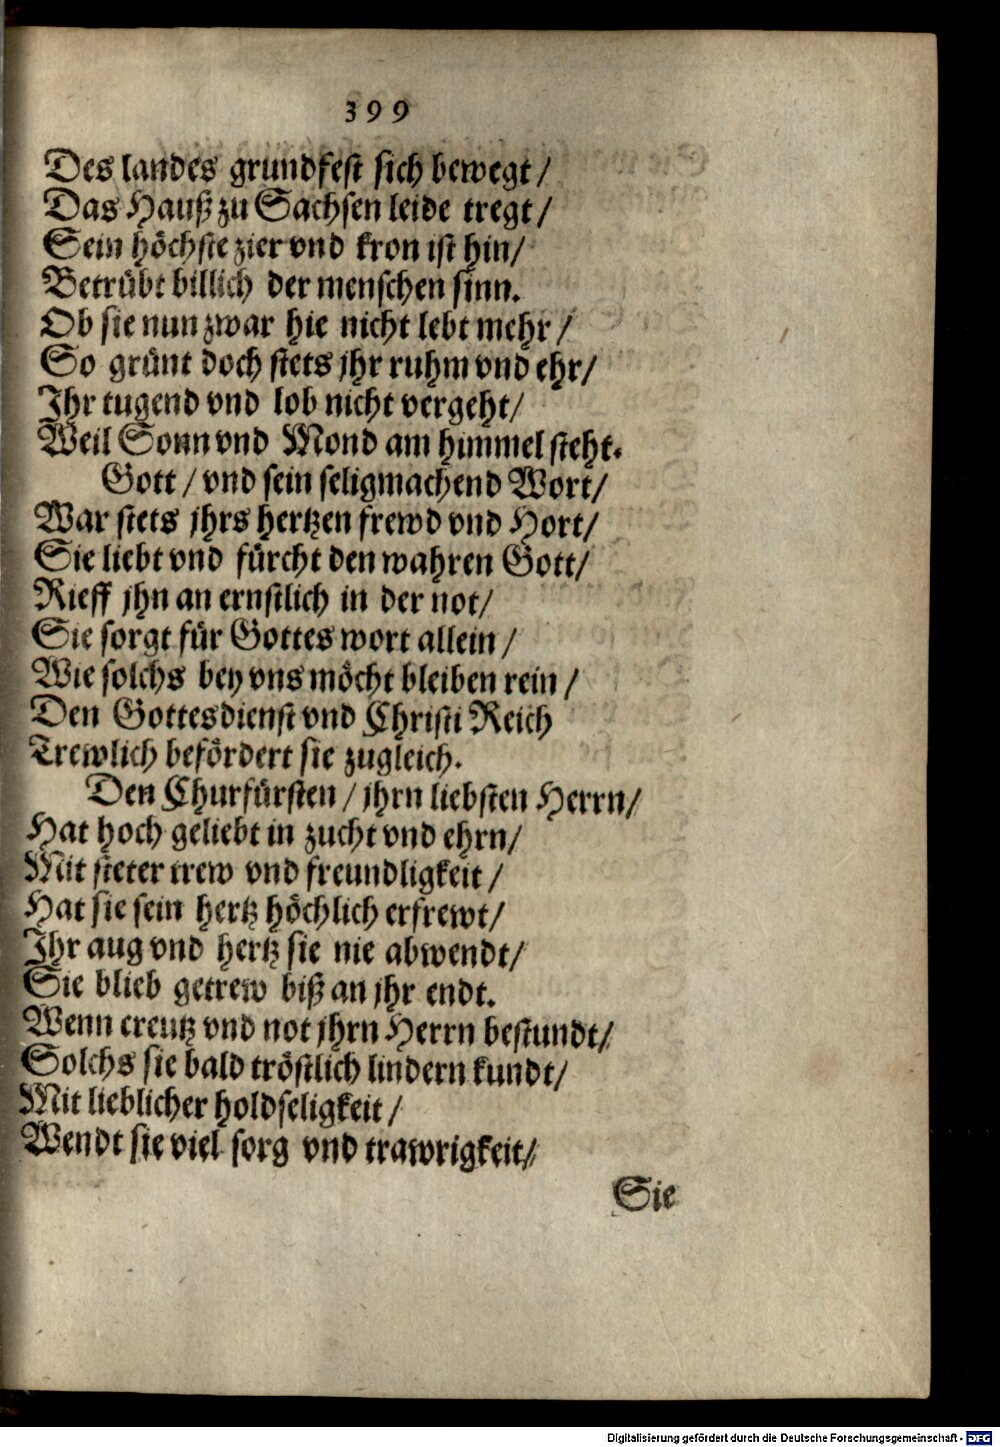 399
Des landes grundfest sich bewegt/
Das Hauß zu Sachsen leide tregt/
Sein höchste zier vnd kron ist hin/
Betrübt billich der menschen sinn.
Ob sie nun zwar hie nicht lebt mehr/
So grünt doch stets jhr ruhm vnd ehr/
Ihr tugend vnd lob nicht vergeht/
Weil Sonn vnd Mond am himmel steht.
Gott/ vnd sein seligmachend Wort/
War stets jhrs hertzen frewd vnd Hort/
Sie liebt vnd fürcht den wahren Gott/
Rieff jhn an ernstlich in der not/
Sie sorgt für Gottes wort allein/
Wie solchs bey vns möcht bleiben rein/
Den Gottesdienst vnd Christi Reich
Trewlich befördert sie zugleich.
Den Churfürsten/ jhrn liebsten Herrn/
Hat hoch geliebt in zucht vnd ehrn/
Mit steter trew vnd freundligkeit/
Hat sie sein hertz höchlich erfrewt/
Ihr aug vnd hertz sie nie abwendt/
Sie blieb getrew biß an jhr endt.
Wenn creutz vnd not jhrn Herrn bestundt/
Solchs sie bald tröstlich lindern kundt/
Mit lieblicher holdseligkeit/
Wendt sie viel sorg vnd trawrigkeit/
Sie
Digitalisierung gefördert durch die Deutsche Forschungsgemeinschaft - DFG